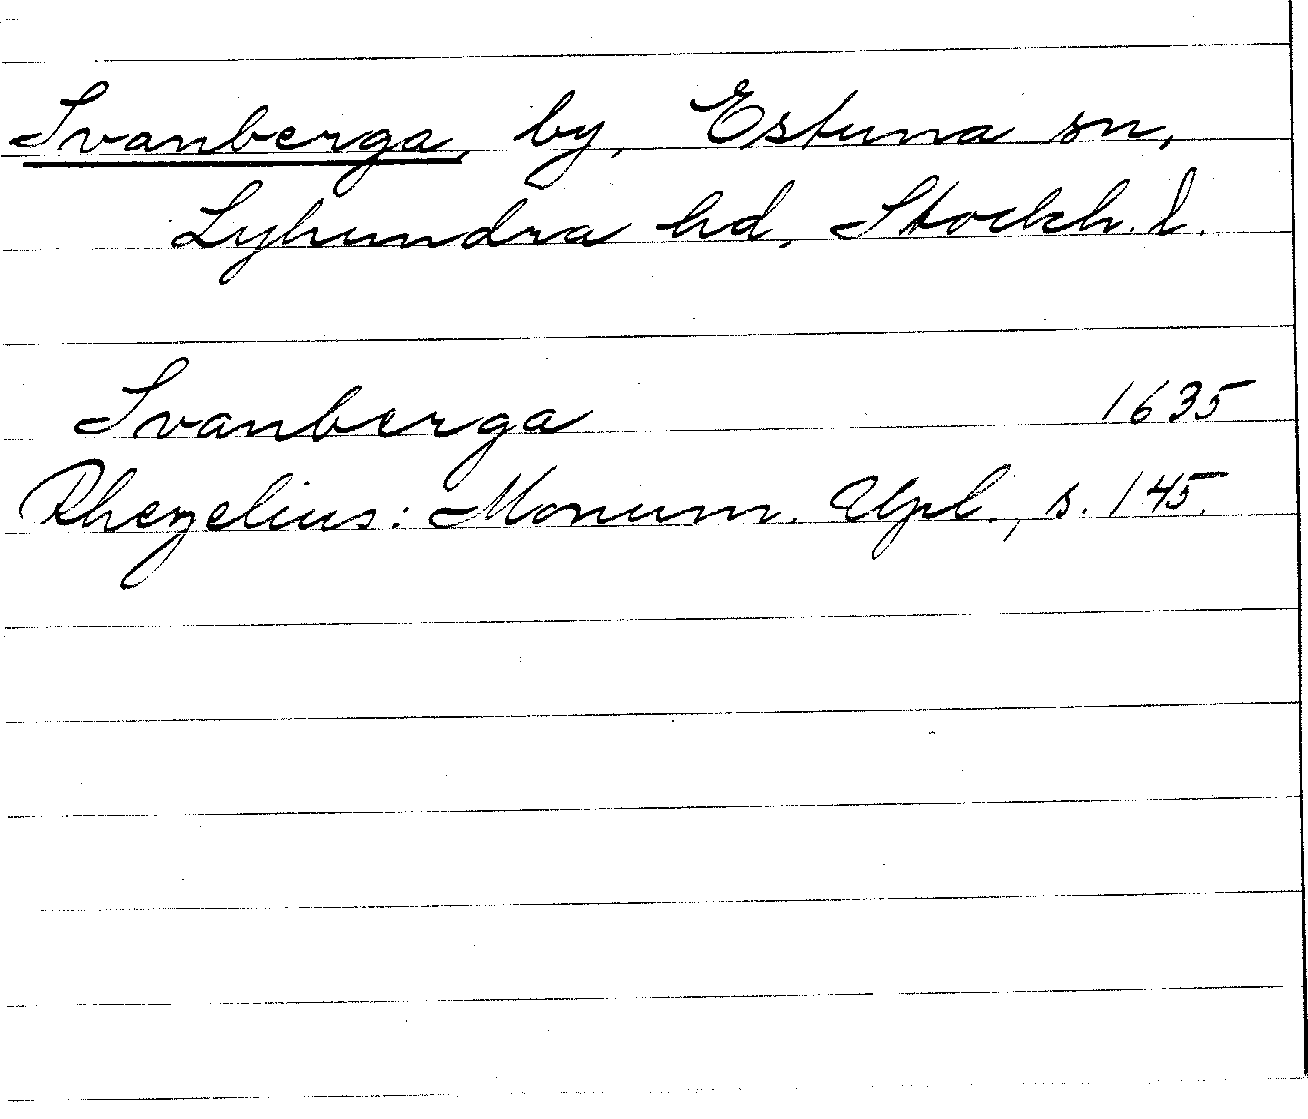 Svanberga, by, Estuna sn,
Lyhundra hd, Stockh. l.
Svanberga 1635
Rhezelius: Monum. Upl., s. 145.